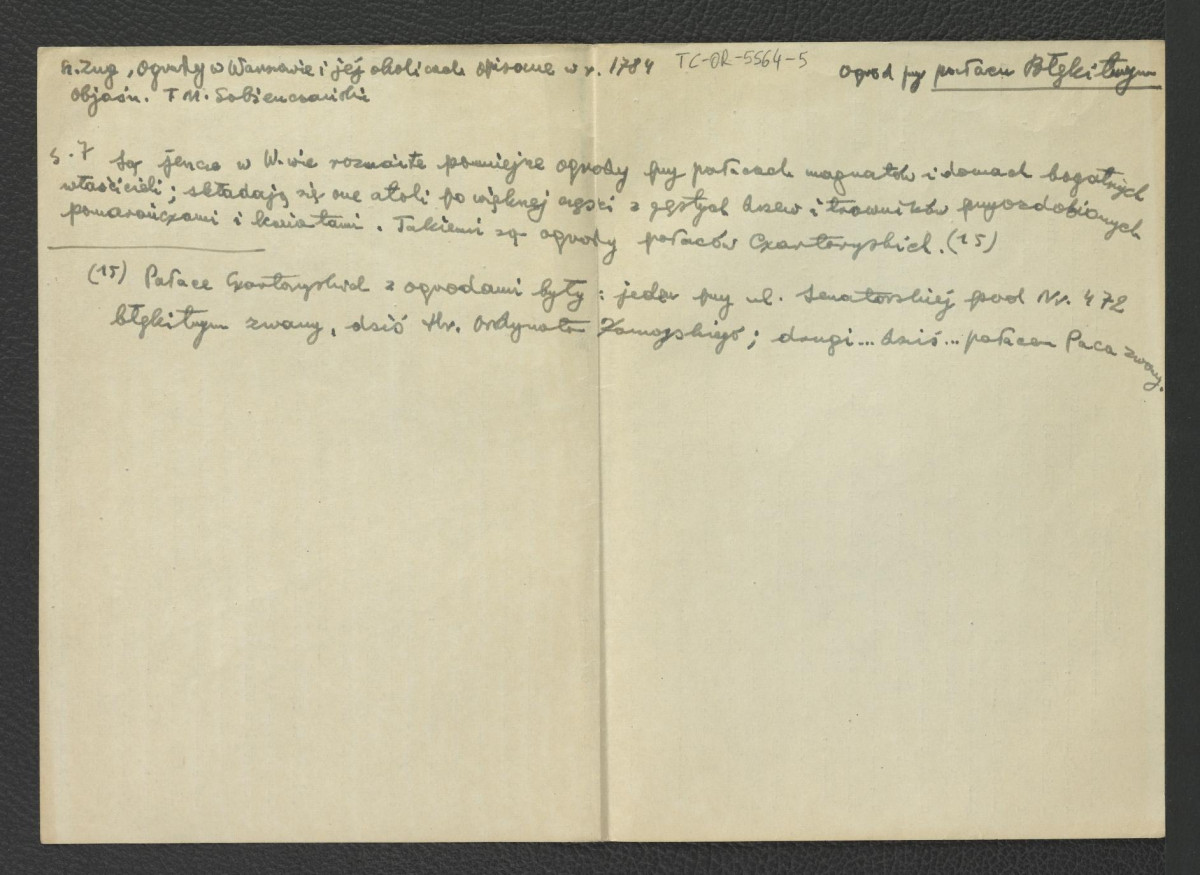 S. Zug, Ogrody w Warszawie i jej okolicach opisane w r. 1784
TC-OR-5564-5
Ogród przy pałacu Błękitnym
objaśn. F. M. Sobieszczański
s. 7 Są jeszcze w W-wie rozmaite pomniejsze ogrody przy pałacach magnatów i domach bogatszych
właścicieli; składają się one atoli po większej części z gęstych drzew i trawników przyozdobionych
pomarańczami i kwiatami. Takiemi są ogrody pałaców Czartoryskich. (15)
(15) Pałace Czartoryskich z ogrodami były: jeden przy ul. Senatorskiej pod Nr. 472
błękitnym zwany, dziś Hr. Ordynata Zamojskiego; drugi... dziś... pałacem Paca zwany.